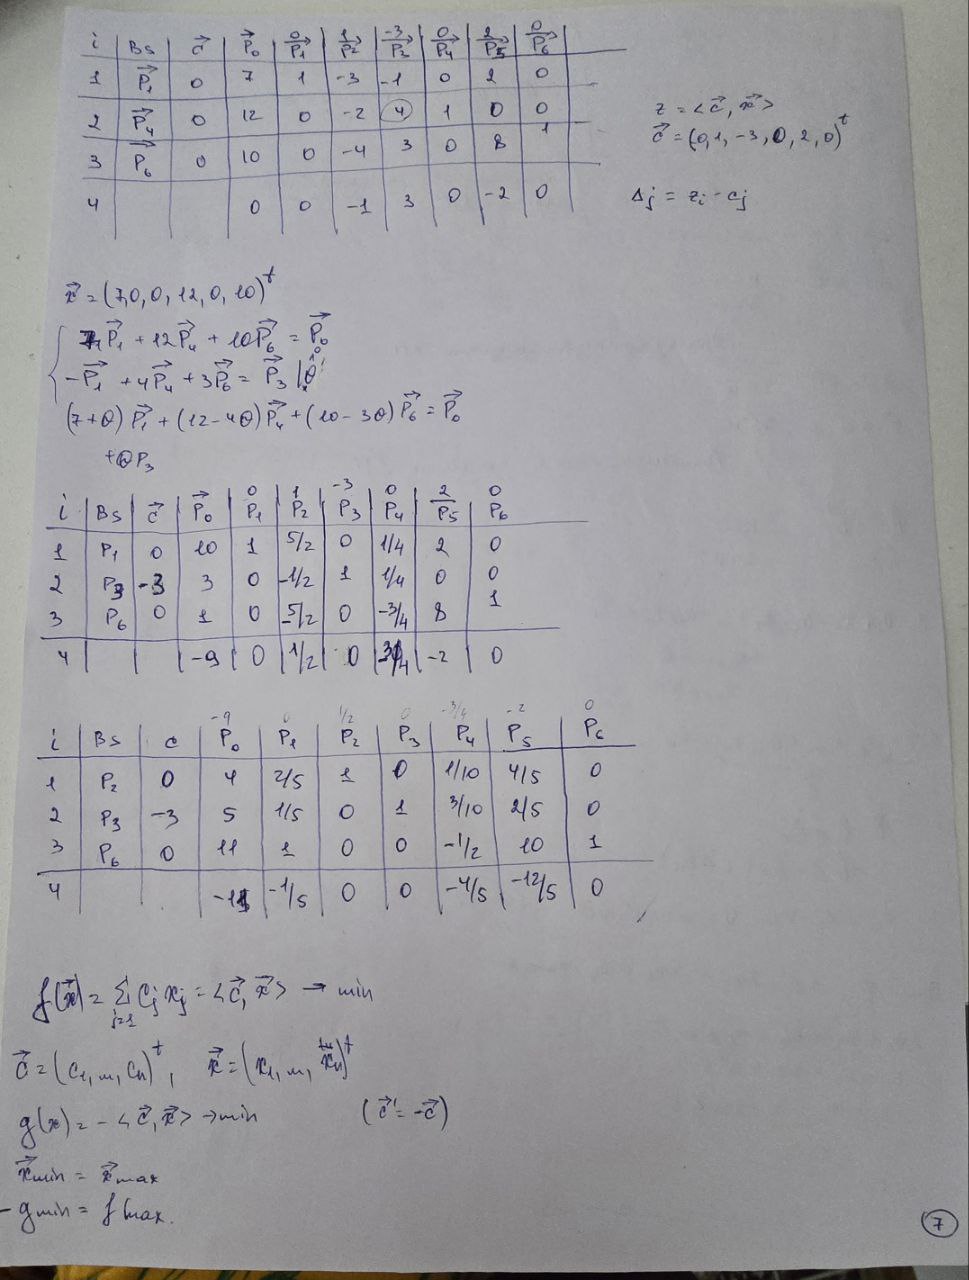 i | Bs | c⃗ | P⃗₀ | 0 P⃗₁ | 1 P⃗₂ | -3 P⃗₃ | 0 P⃗₄ | 2 P⃗₅ | 0 P⃗₆
1 | P⃗₁ | 0 | 7 | 1 | -3 | -1 | 0 | 2 | 0
2 | P⃗₄ | 0 | 12 | 0 | -2 | 4 | 1 | 0 | 0
3 | P⃗₆ | 0 | 10 | 0 | -4 | 3 | 0 | 8 | 1
4 | | | 0 | 0 | -1 | 3 | 0 | -2 | 0
z = <c⃗, x⃗>
c⃗ = (0, 1, -3, 0, 2, 0)ᵗ
Δj = zi - cj
x⃗ = (7,0, 0, 12, 0, 10)ᵗ
7P⃗₁ + 12P⃗₄ + 10P⃗₆ = P⃗₀
-P⃗₁ + 4P⃗₄ + 3P⃗₆ = P⃗₃ | θ
(7+θ) P⃗₁ + (12-4θ) P⃗₄ + (10-3θ) P⃗₆ = P⃗₀
+θP₃
i | Bs | c⃗ | P⃗₀ | 0 P₁ | 1 P₂ | -3 P₃ | 0 P₄ | 2 P₅ | 0 P₆
1 | P₁ | 0 | 10 | 1 | 5/2 | 0 | 1/4 | 2 | 0
2 | P₃ | -3 | 3 | 0 | -1/2 | 1 | 1/4 | 0 | 0
3 | P₆ | 0 | 1 | 0 | -5/2 | 0 | -3/4 | 8 | 1
4 | | | -9 | 0 | 1/2 | 0 | -3/4 | -2 | 0
i | Bs | c | -9 P₀ | 0 P₁ | 1/2 P₂ | 0 P₃ | -3/4 P₄ | -2 P₅ | 0 P₆
1 | P₂ | 0 | 4 | 2/5 | 1 | 0 | 1/10 | 4/5 | 0
2 | P₃ | -3 | 5 | 1/5 | 0 | 1 | 3/10 | 2/5 | 0
3 | P₆ | 0 | 11 | 1 | 0 | 0 | -1/2 | 10 | 1
4 | | | -11 | -1/5 | 0 | 0 | -4/5 | -12/5 | 0
f(x⃗) = Σ j=1 cj xj = <c⃗, x⃗> → min
c⃗ = (c₁, ..., cn)ᵗ, x⃗ = (x₁, ..., xn)ᵗ
g(x) = - <c⃗, x⃗> → min (c⃗' = -c⃗)
x⃗min = x⃗max
- gmin = fmax.
7